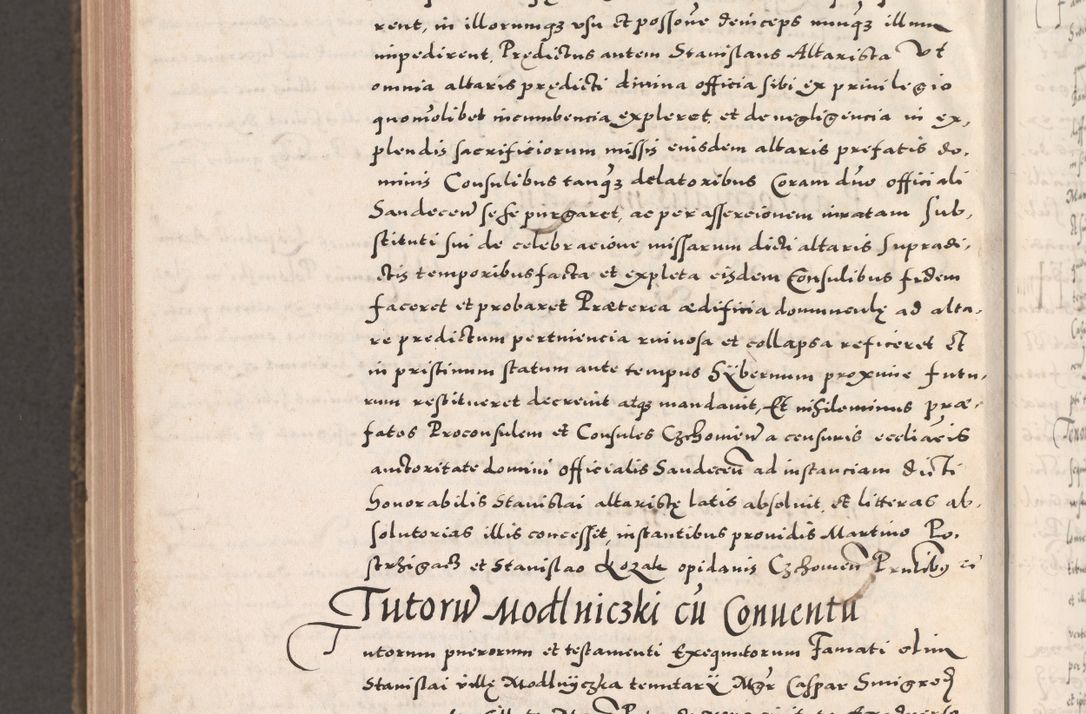 rent, in illorumqꝫ usu et possoñe deinceps nunqꝫ illum
impedirent. Predictus autem Stanislaus Altarista Ut
omnia altaris predicti divina officia sibi ex privilegio
quomolibet incumbencia expleret, et de negligencia in ex-
plendis sacrificiorum missis eiusdem altaris prefatis do-
minis Consulibus tanqꝫ delatoribus Coram dño officiali
Sandeceñ sese purgaret, ac per assercionem iuratam Sub-
stituti sui de celebracione missarum dicti altaris Supradi-
ctis temporibus facta et expleta eisdem Consulibus fidem
faceret et probaret Præterea ædificia domunculę ad alta-
re predictum pertinencia ruinosa et collapsa reficeret Et
in pristinum statum ante tempus Hÿbernum proxime futu-
rum restitueret decrevit atqꝫ mandavit, Et nihilominus præ-
fatos Proconsulem et Consules Czchovieñ a censuris eccliacis
auctoritate domini officialis Sandeceñ ad instanciam Dicti
honorabilis Stanislai altaristę latis absolvit, et litteras ab-
solutorias illis concessit, instantibus providis Martino Po-
strzigacz et Stanislao Kozak opidanis Czchovieñ Pñtibus
Tutorū Modlniczki cū Conventu
Tutorum puerorum et testamenti Exequutorum Famati olim
Stanislai villę Modlnÿczka tenutarÿ Mgr Caspar Smigrod